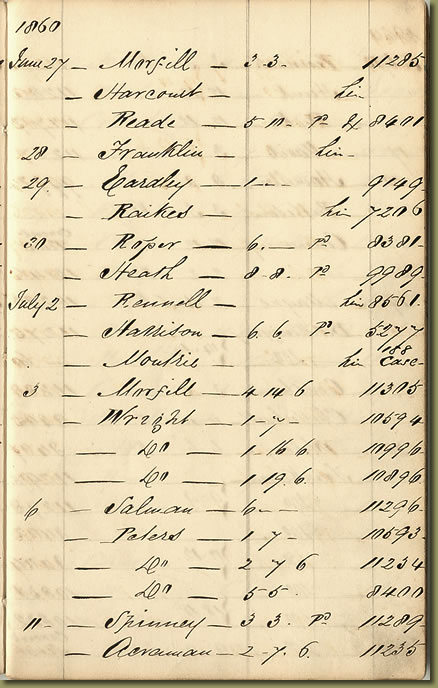 1860
June 27 — Morfill — 3-3- 11285
— Harcourt — Lin
— Reade — 5 10- pd & 8401
28 — Franklin — Lin-
29. — Eardley — 1-- 9149-
— Raikes Lin 7206
30 — Roper — 6.— pd 8381-
— Heath — 8-8- pd 9989-
July 2 — Rennell — Lin 8561.
— Harrison — 6.6. pd 5277
— Moutrie — Lin 188 Case-
3 — Morfill — 4 14 6 11305
— Wright — 1-7- 10594
— Do — 1 16 6 10996
— Do — 1 19. 6 10896
6 — Salman — 6-- 11296-
— Peters — 1 7- 10593-
— Do — 2 7 6 11234
— Do — 5 5. 8400
11- — Spinney — 3 3. pd 11289
— Acraman — 2-7. 6. 11235